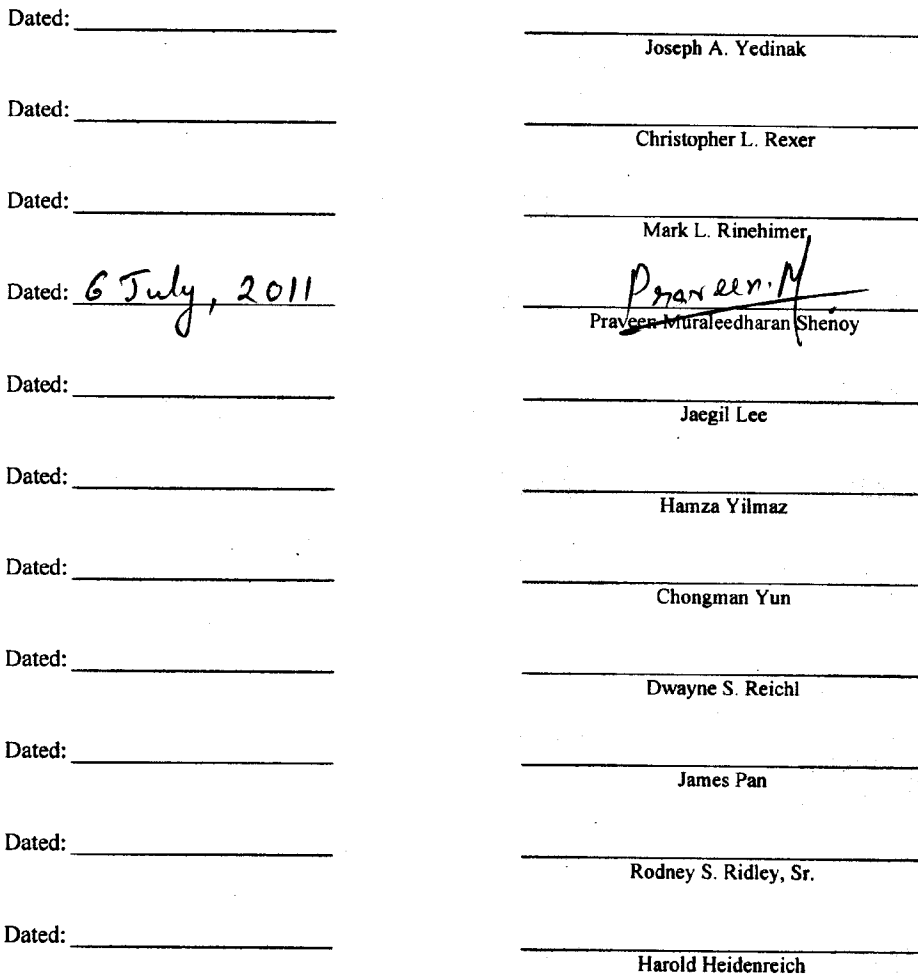 Dated:
Joseph A. Yedinak
Dated:
Christopher L. Rexer
Dated:
Mark L. Rinehimer
Dated: 6 July, 2011 Praveen.M
Praveen Muraleedharan Shenoy
Dated:
Jaegil Lee
Dated:
Hamza Yilmaz
Dated:
Chongman Yun
Dated:
Dwayne S. Reichl
Dated:
James Pan
Dated:
Rodney S. Ridley, Sr.
Dated:
Harold Heidenreich